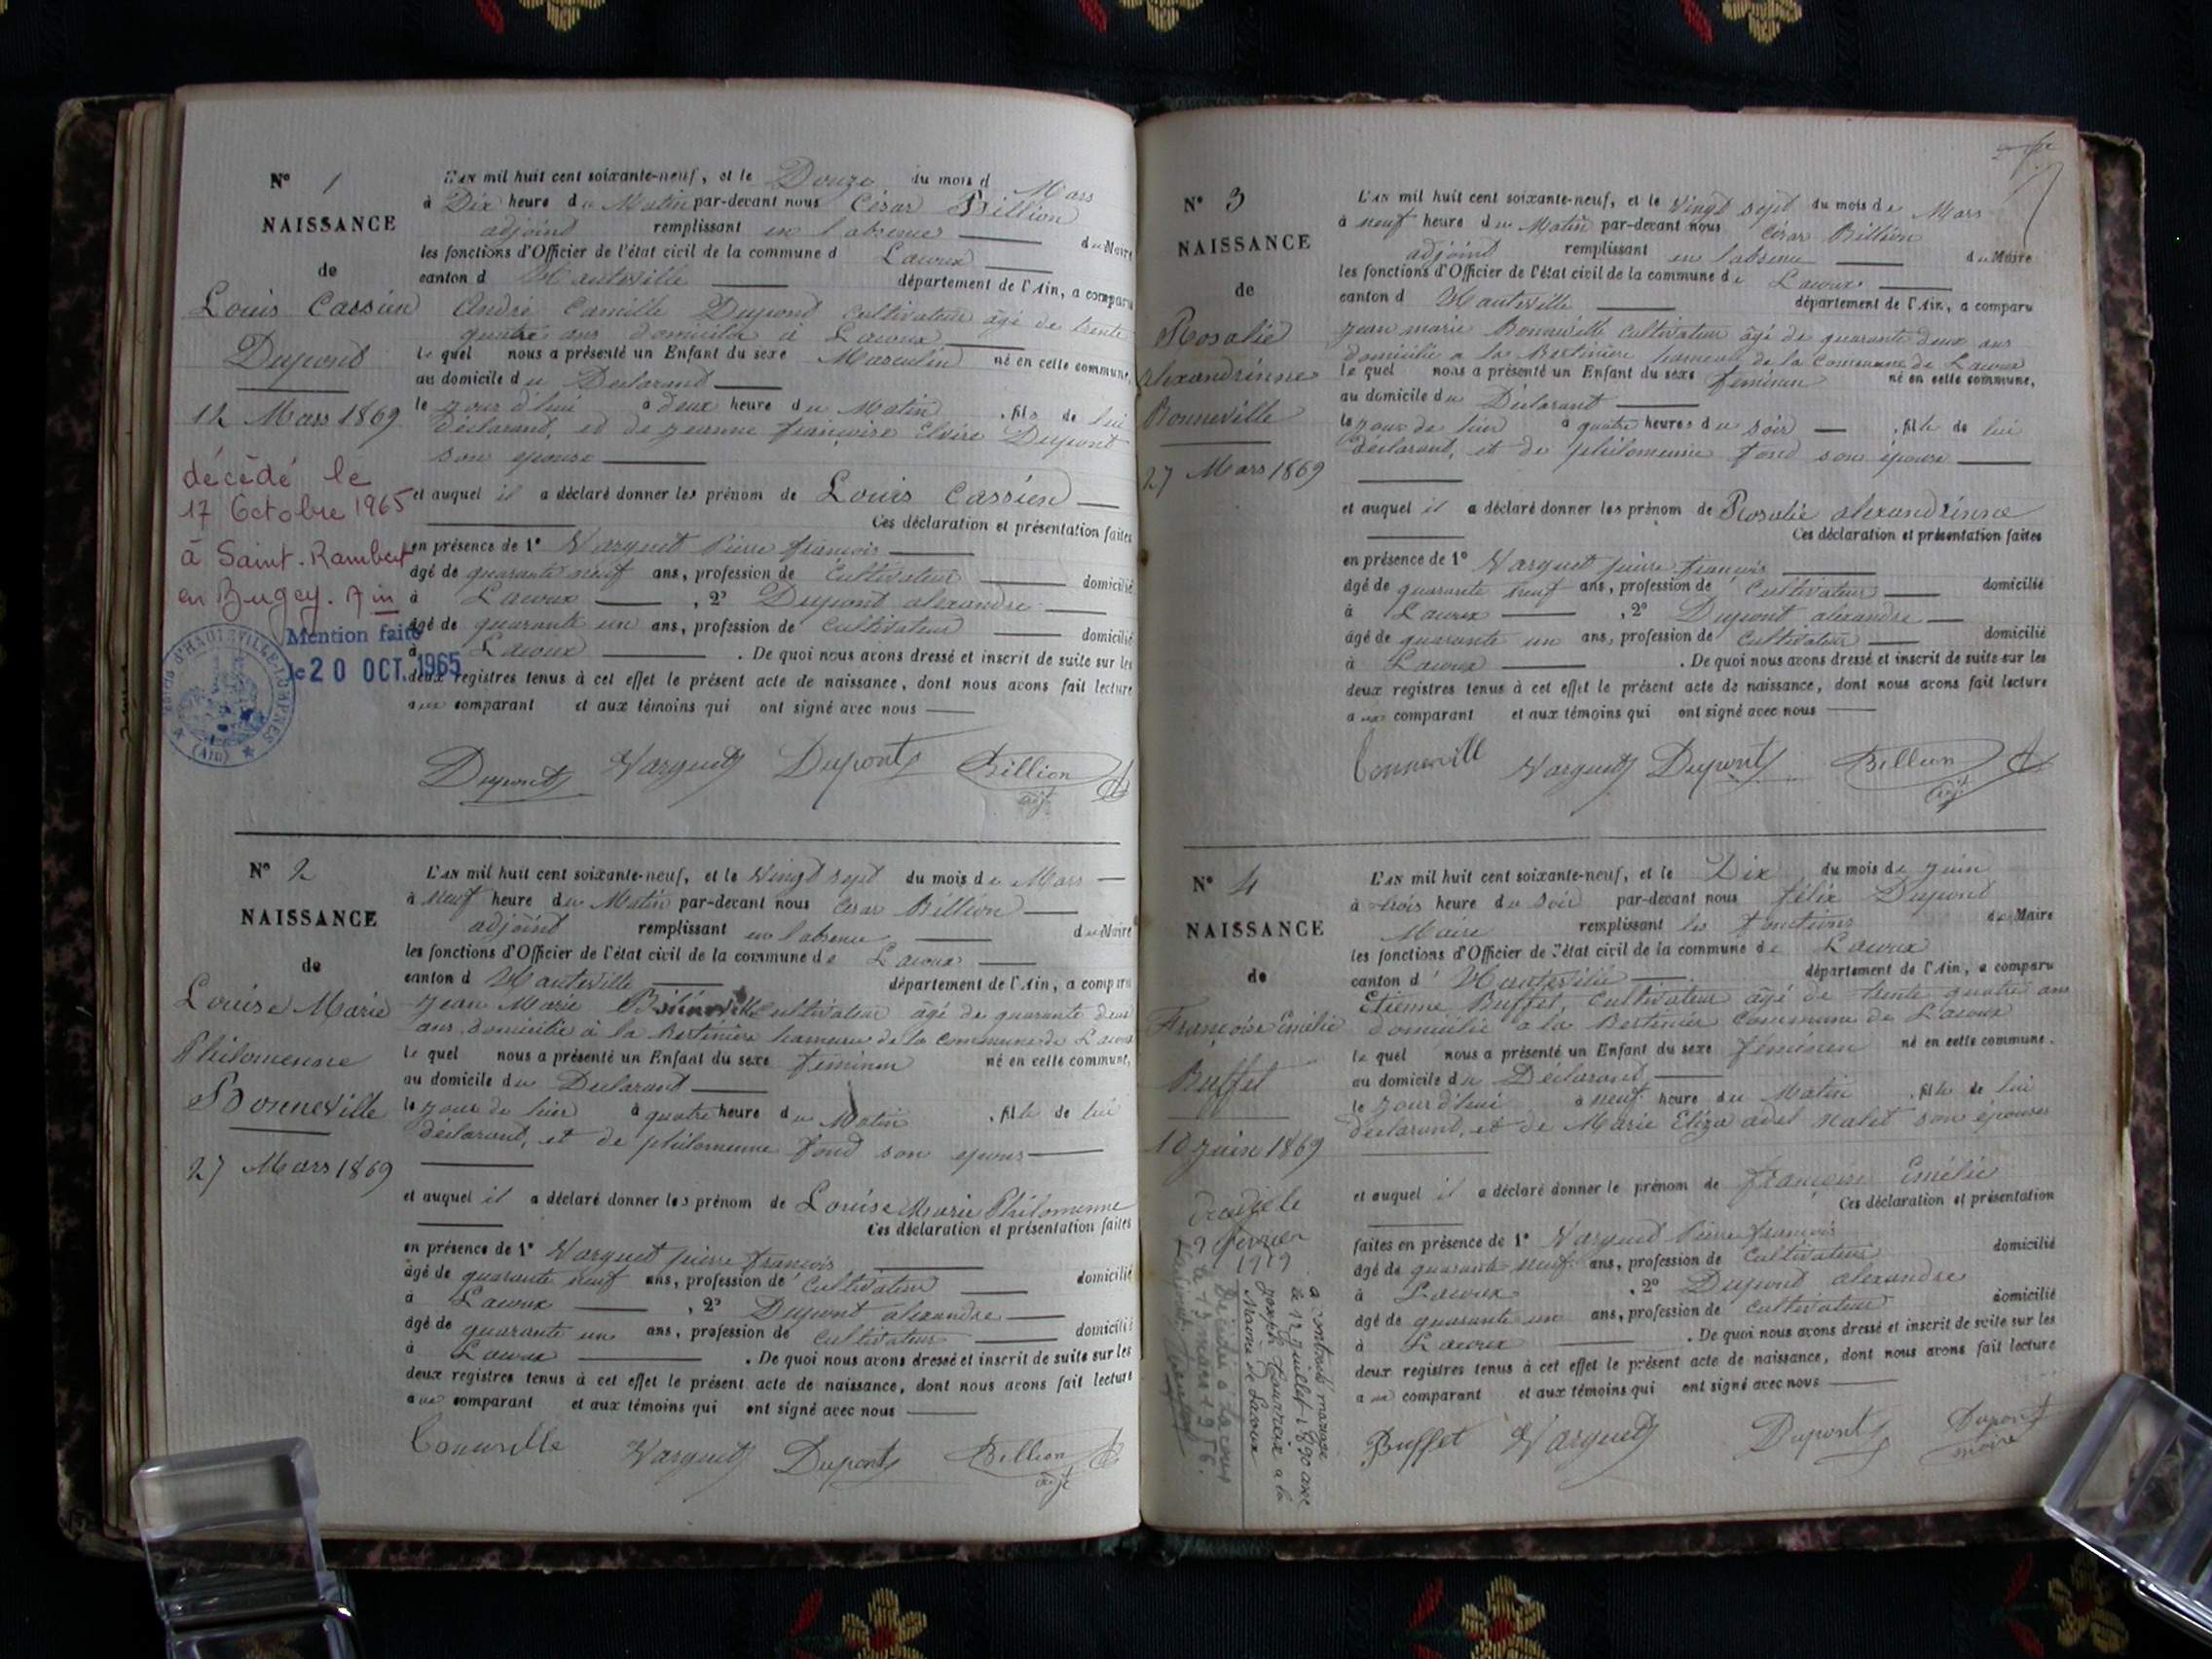 N° 1
NAISSANCE
de
Louis Cassien
Dupond
12 Mars 1869
décédé le
17 Octobre 1965
à Saint-Rambert
en Bugey. Ain
Mention faite
le 20 OCT. 1965
(AIN)
L'AN mil huit cent soixante-neuf, et le Douze du mois d Mars
à Dix heure du Matin par-devant nous César Billion
adjoind remplissant en l'absence du Maire
les fonctions d'Officier de l'état civil de la commune d Lacoux
canton d Hauteville département de l'Ain, a comparu
André Camille Dupond cultivateur âgé de trente
quatre ans domicilié à Lacoux
le quel nous a présenté un Enfant du sexe Masculin né en cette commune,
au domicile du Déclarand
le jour d'hui à deux heure du Matin, fils de lui
déclarand, et de jeanne françoise Elvire Dupont
son epouse
et auquel il a déclaré donner les prénom de Louis Cassien
Ces déclaration et présentation faites
en présence de 1° Varguet Pierre françois
âgé de quarante neuf ans, profession de Cultivateur domicilié
à Lacoux, 2° Dupont alexandre
âgé de quarante un ans, profession de cultivateur domicilié
à Lacoux. De quoi nous avons dressé et inscrit de suite sur les
deux registres tenus à cet effet le présent acte de naissance, dont nous avons fait lecture
aux comparant et aux témoins qui ont signé avec nous
Dupont Varguet Dupont Billion
adj.
N° 2
NAISSANCE
de
Louise Marie
Philomenne
Bonneville
27 Mars 1869
L'AN mil huit cent soixante-neuf, et le Vingt sept du mois de Mars
à Neuf heure du Matin par-devant nous César Billion
adjoind remplissant en l'absence du Maire
les fonctions d'Officier de l'état civil de la commune de Lacoux
canton d Hauteville département de l'Ain, a comparu
Jean Marie cultivateur âgé de quarante deux
ans domicilié à la Bertinière hameau de la commune de Lacoux
le quel nous a présenté un Enfant du sexe féminin né en cette commune,
au domicile du Déclarant
le jour de hier à quatre heure du Matin, fille de lui
déclarand, et de philomenne fond son epouse
et auquel il a déclaré donner les prénom de Louise Marie Philomenne
Ces déclaration et présentation faites
en présence de 1° Varguet pierre françois
âgé de quarante neuf ans, profession de Cultivateur domicilié
à Lacoux, 2° Dupont alexandre
âgé de quarante un ans, profession de cultivateur domicilié
à Lacoux. De quoi nous avons dressé et inscrit de suite sur les
deux registres tenus à cet effet le présent acte de naissance, dont nous avons fait lecture
aux comparant et aux témoins qui ont signé avec nous
Varguet Dupont Billion
adjt
N° 3
NAISSANCE
de
Rosalie
alexandrinne
Bonneville
27 Mars 1869
L'AN mil huit cent soixante-neuf, et le Vingt sept du mois de Mars
à neuf heure du Matin par-devant nous César Billion
adjoint remplissant en l'absence du Maire
les fonctions d'Officier de l'état civil de la commune de Lacoux
canton d Hauteville département de l'Ain, a comparu
jean marie Bonneville cultivateur âgé de quarante deux ans
domicilié a la Bertinière hameau de la Commune de Lacoux
le quel nous a présenté un Enfant du sexe féminin né en cette commune,
au domicile du Déclarant
le jour de hier à quatre heures du soir, fille de lui
déclarant, et de philomenne fond son épouse
et auquel il a déclaré donner les prénom de Rosalie alexandrinne
Ces déclaration et présentation faites
en présence de 1° Varguet pierre françois
âgé de quarante neuf ans, profession de Cultivateur domicilié
à Lacoux, 2° Dupont alexandre
âgé de quarante un ans, profession de cultivateur domicilié
à Lacoux. De quoi nous avons dressé et inscrit de suite sur les
deux registres tenus à cet effet le présent acte de naissance, dont nous avons fait lecture
aux comparant et aux témoins qui ont signé avec nous
Varguet Dupont Billion
adjt
N° 4
NAISSANCE
de
Françoise Emélie
Buffet
10 juin 1869
février
1919
a contracté mariage
le 12 juillet 1890 avec
Joseph a la
Mairie de Lacoux
Décédée à Lacoux
le 13 mars 1956.
L'AN mil huit cent soixante-neuf, et le Dix du mois de juin
à trois heure du soir par-devant nous félix Dupond
Maire remplissant les fonctions de Maire
les fonctions d'Officier de l'état civil de la commune de Lacoux
canton d' Hauteville département de l'Ain, a comparu
Etienne Buffet, cultivateur âgé de trente quatre ans
domicilié à la Bertinière Commune de Lacoux
le quel nous a présenté un Enfant du sexe féminin né en cette commune.
au domicile du Déclarant
le jour d'hui à neuf heure du Matin, fille de lui
déclarant, et de Marie Eliza adel Nalet son épouse
et auquel il a déclaré donner le prénom de françoise Emélie
Ces déclaration et présentation
faites en présence de 1° Varguet Pierre françois
âgé de quarante neuf ans, profession de Cultivateur domicilié
à Lacoux, 2° Dupond alexandre
âgé de quarante un ans, profession de cultivateur domicilié
à Lacoux. De quoi nous avons dressé et inscrit de suite sur les
deux registres tenus à cet effet le présent acte de naissance, dont nous avons fait lecture
aux comparant et aux témoins qui ont signé avec nous
Buffet Varguet Dupont Dupont
maire